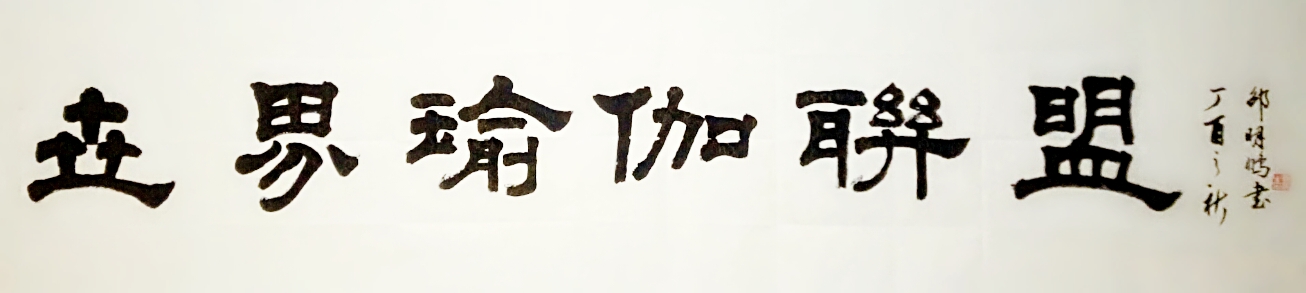 世界瑜伽聯盟
丁酉之秋
邹明鹏书